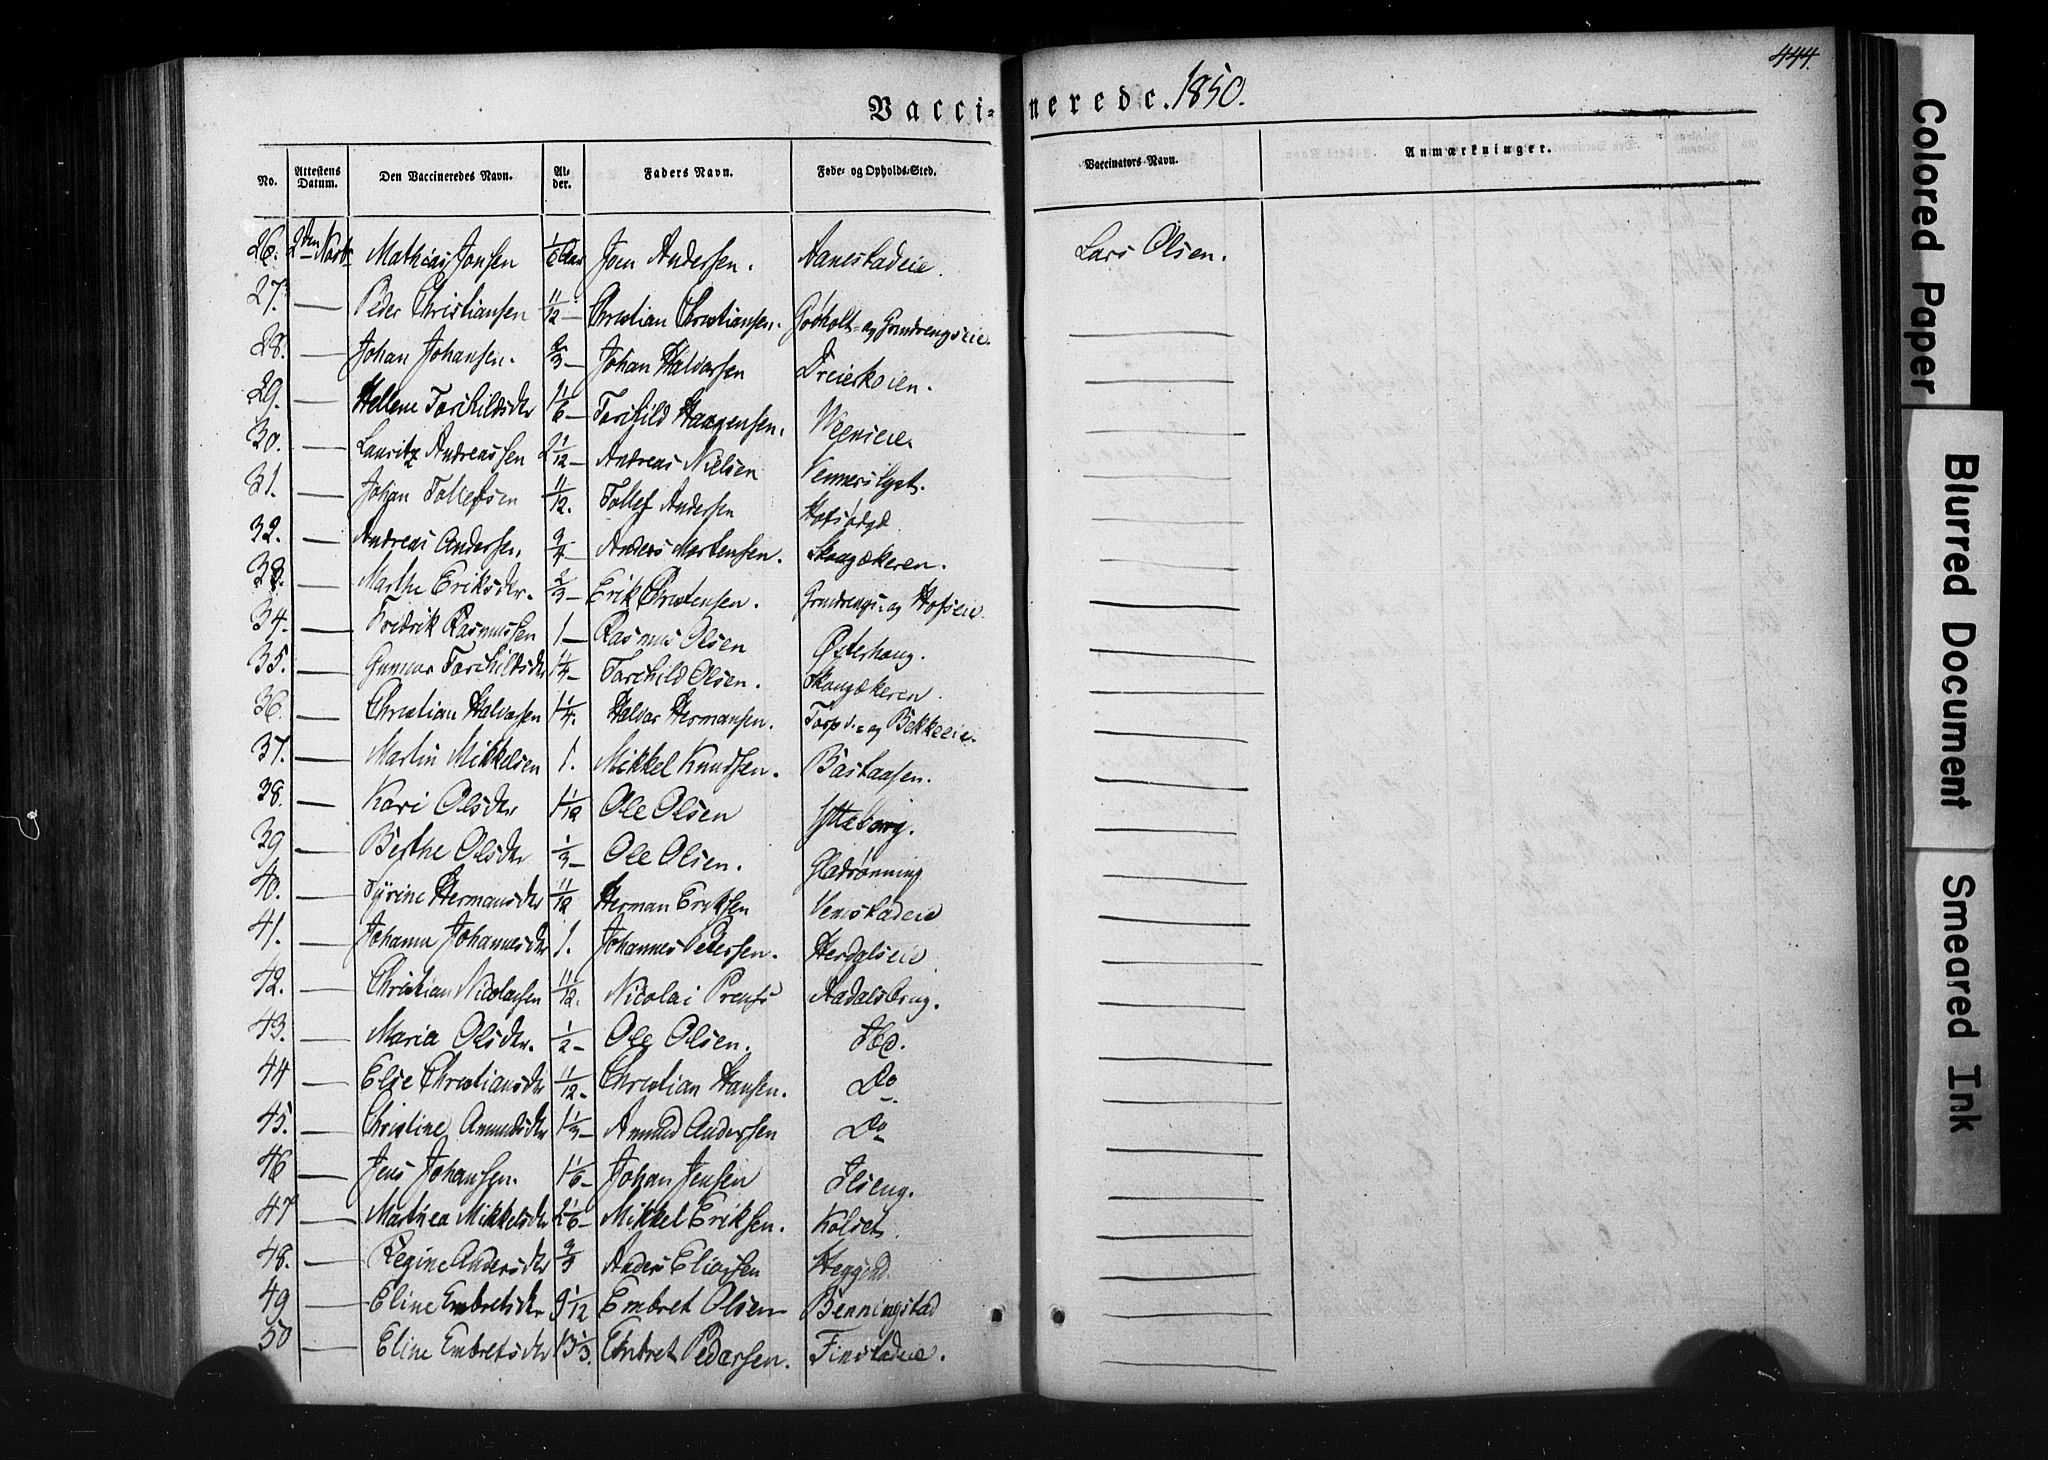 444.
Vacci-nerede. 1850.
No. Attestens Datum. Den Vaccineredes Navn. Al-der. Faders Navn. Føde- og Opholds-Sted. Vaccinators Navn. Anmærkninger.
26. 2den Mathias Jonsen 1/6 Aar Joen Andersen. Aanestadeie. Lars Olsen.
27. — Peder Christiansen 11/12 — Christian Christiansen. og Grundvengseie. —
28. — Johan Johansen. 2/3 — Johan Halvorsen Dreierkoien. —
29. — Hellene Torchildsdr 1 1/6 — Torchild Haagensen. —
30. — Lauritz Andreassen 2 1/12 — Andreas Nielsen Vennerslyst. —
31. — Johan Tollefsen 11/12. Tollef Andersen —
32. — Andreas Andersen. Anders Mortensen. Skougækeren. —
33. — Marthe Eriksdr. 2/3 — Erik Christensen. og Hofseie. —
34. — Fridrik Rasmussen 1 — Rasmus Olsen Østerhaug. —
35. — Gunnor Torchildsdr 1 1/4 — Torchild Olsen. Skougækeren. —
36. — Christian Halvorsen 1 1/4. Halvor Hermansen. Torps- og Bekkeeie. —
37. — Martin Mikkelsen 1. Mikkel Knudsen. Bastaasen. —
38. — Kari Olsdr 1 1/12 Ole Olsen Ytteborg. —
39 — Berthe Olsdr 1/3 — Ole Olsen. Gladrønning —
40. — Tyrine Hermansdr 11/12 Herman Eriksen Venistadeie —
41. — Johanne Johannesdr 1. Johannes Pedersen. Herdalseie —
42. — Christian Nicolaisen 11/12. Nicolai Aadalsbrug. —
43. — Maria Olsdr. 1/2 — Ole Olsen. Ibd. —
44 — Else Christiansdr 11/12. Christian Hansen. Do —
45. — Christine Amundsdr 1 1/3 — Amund Andersen Do —
46 — Jens Johansen. 1 1/6 — Johan Jensen Ilseng. —
47 — Marthea Mikkelsdr 2 1/6 — Mikkel Eriksen. Kolset. —
48. — Regine Andersdr Anders Eliassen —
49 — Eline Embretsdr 9 1/12 Embret Olsen Benningstad —
50 — Eline Embretsdr 13 1/3. Embret Pedersen. Finstadeie. —
Colored Paper
Blurred Document
Smeared Ink